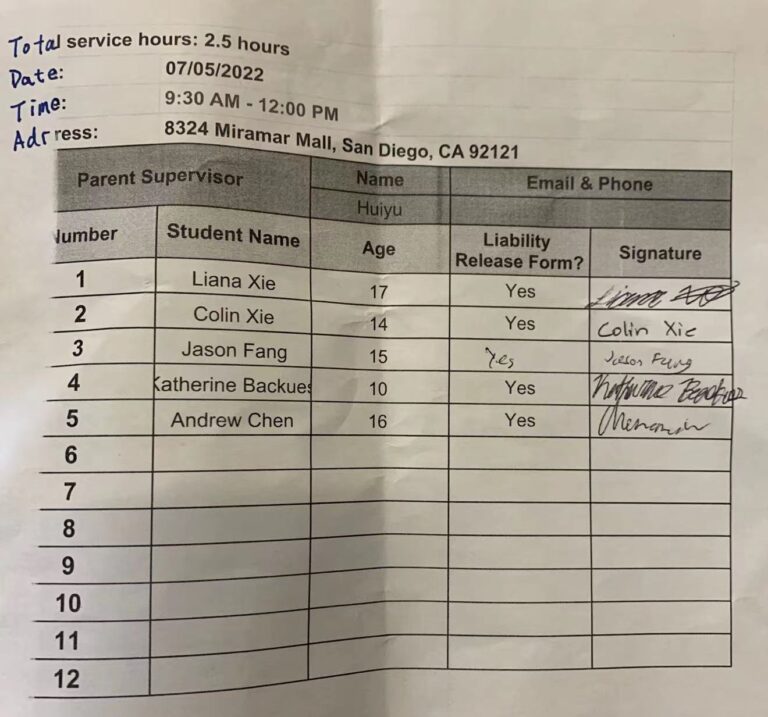 Total service hours: 2.5 hours
Date: 07/05/2022
Time: 9:30 AM - 12:00 PM
Adrress: 8324 Miramar Mall, San Diego, CA 92121
Parent Supervisor Name Email & Phone
Huiyu
Number Student Name Age Liability Release Form? Signature
1 Liana Xie 17 Yes
2 Colin Xie 14 Yes Colin Xie
3 Jason Fang 15 Yes Jason Fang
4 Katherine Backues 10 Yes
5 Andrew Chen 16 Yes
6
7
8
9
10
11
12